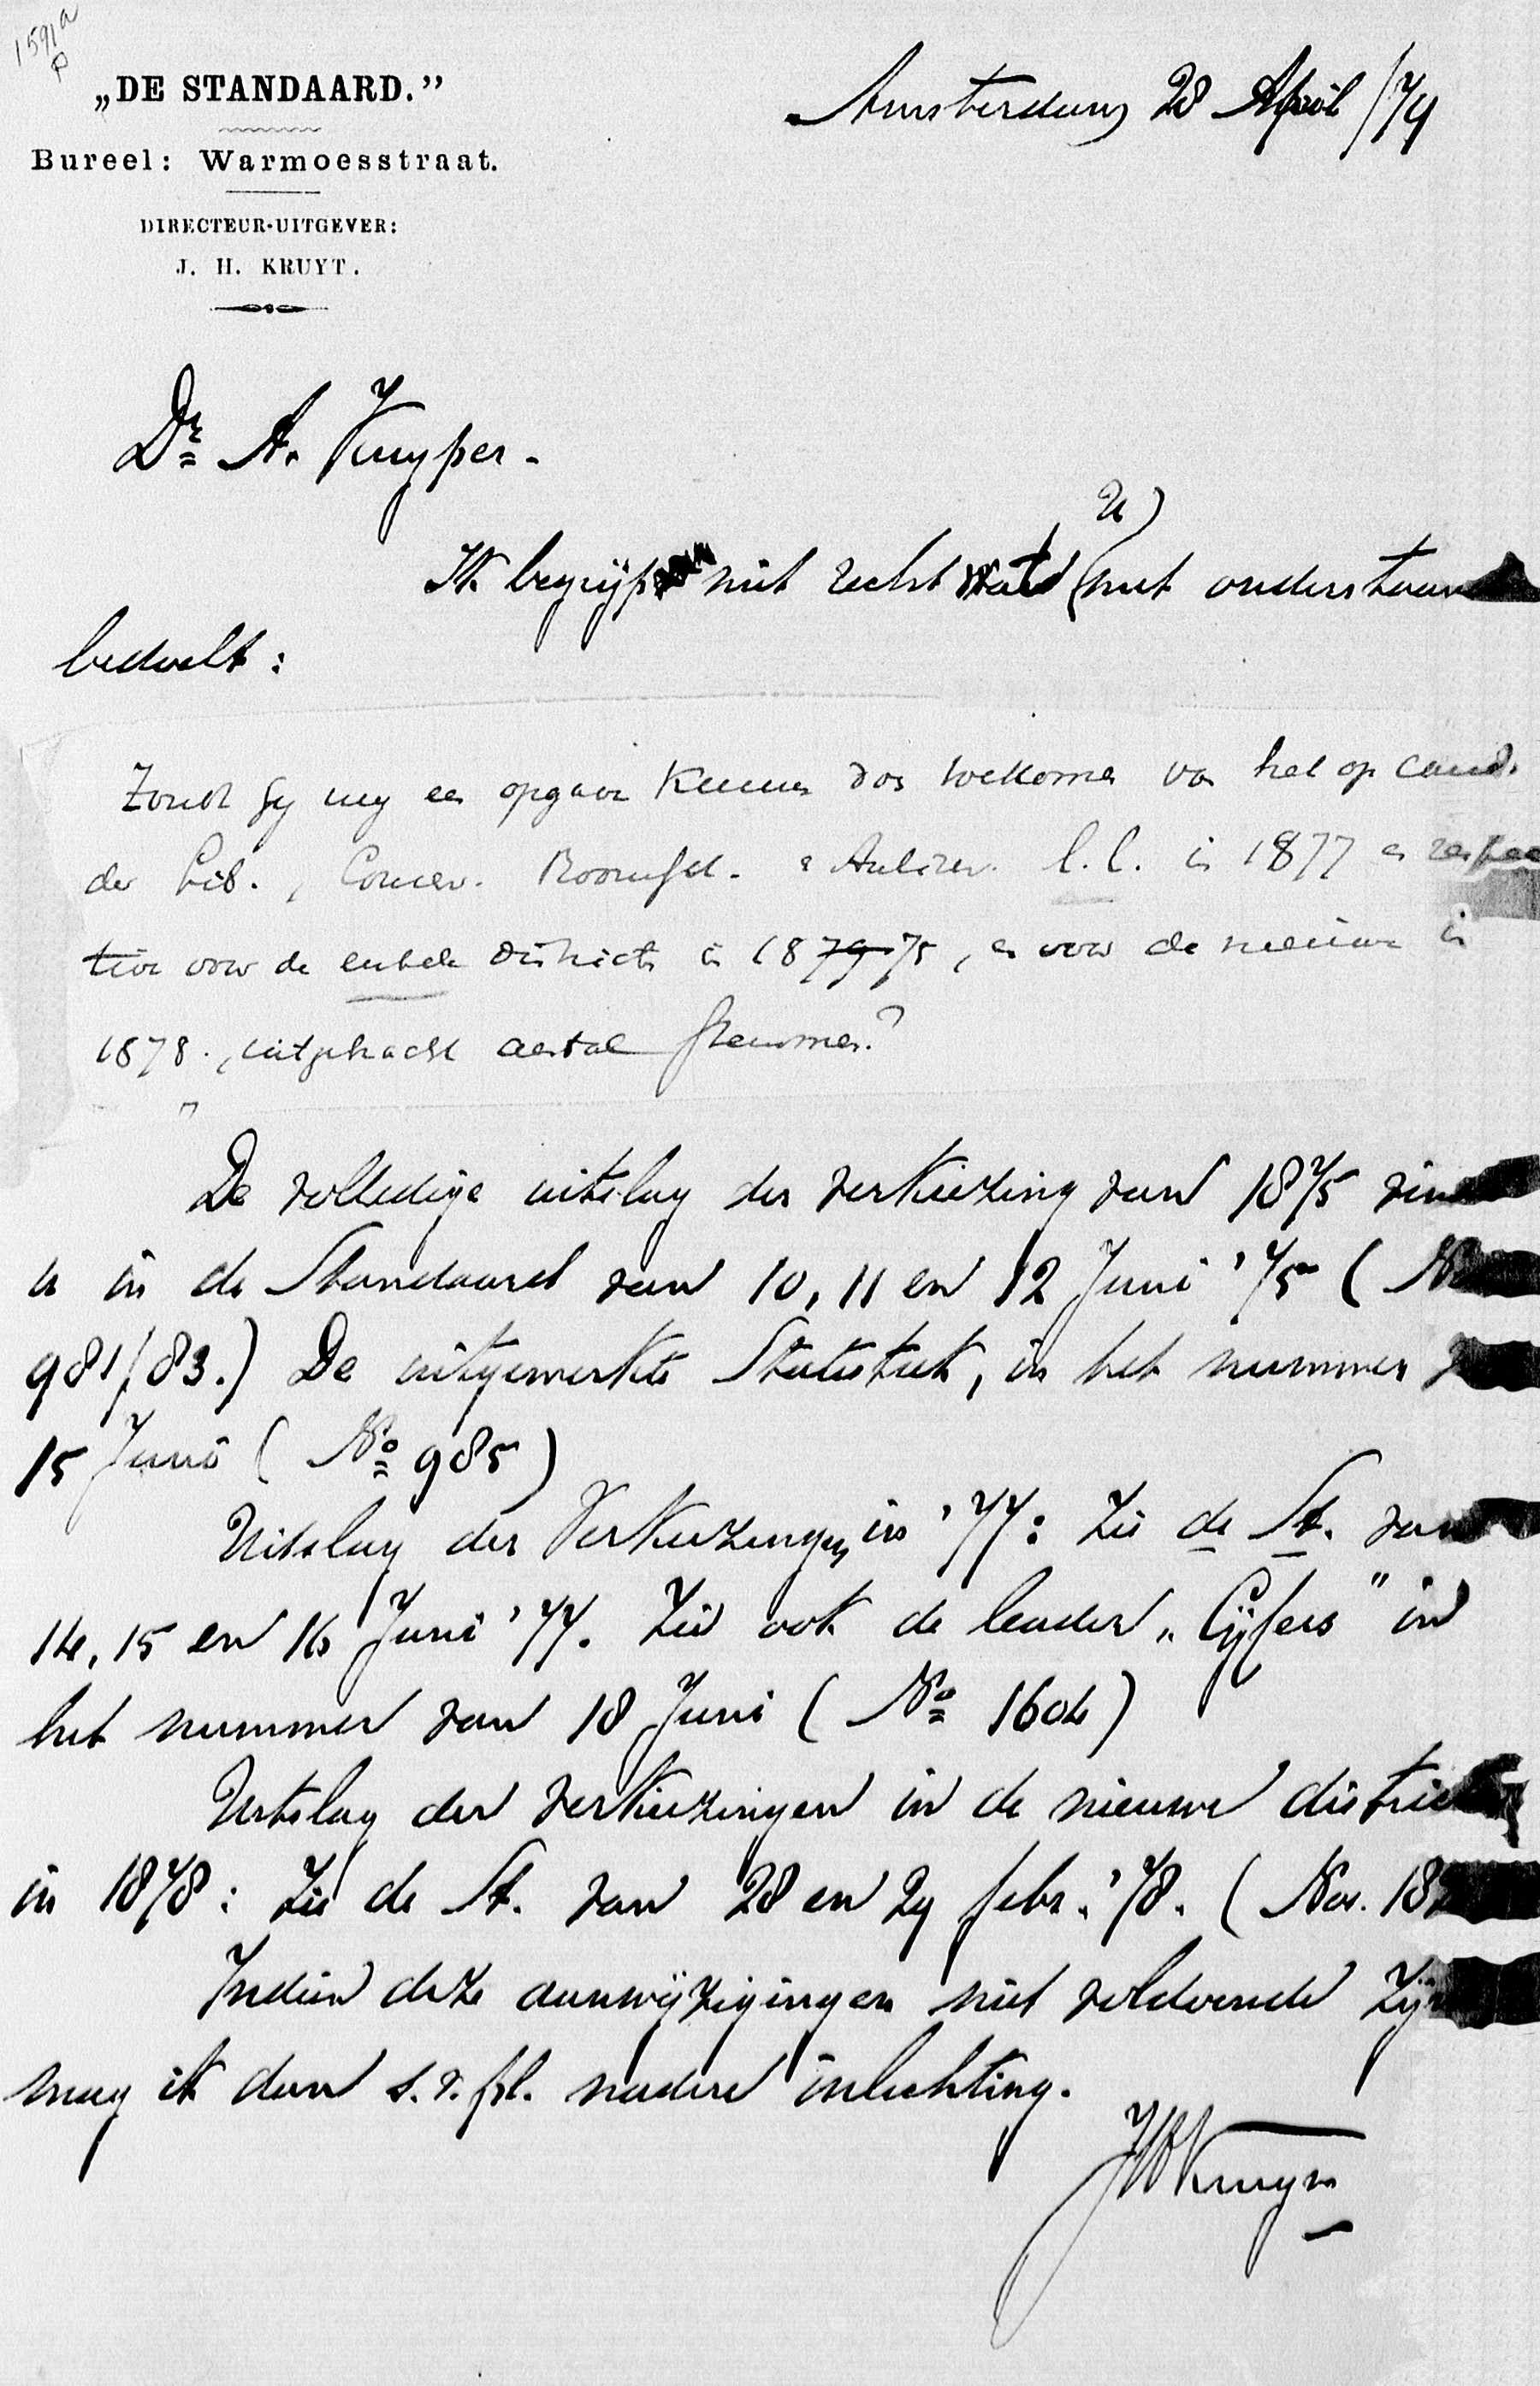 1591a
p
„DE STANDAARD.”
Bureel: Warmoesstraat.
DIRECTEUR-UITGEVER:
J. H. KRUYT.
Amsterdam 28 April /79
Dr A. Kuyper.
Ik begrijp niet recht wat U (met onderstaand
bedoelt:
Zoudt gij mij een opgave kunnen doen toekomen van het op cand.
der Lib., Conserv. Roomsch. & Antirev. l.l. in 1877 en respec
tive voor de enkele districts in 1879 75, en voor de nieuwe in
1878., uitgebracht aantal stemmen?
De volledige uitslag der verkiezing van 1875 vind
u in de Standaard van 10, 11 en 12 Juni '75 (
981/83.) De uitgewerkte Statistiek, in het nummer
15 Juni (No 985)
Uitslag der Verkiezingen in '77: Zie de St. van
14, 15 en 16 Juni '77. Zie ook de leader „Cijfers” in
het nummer van 18 Juni (No 1604)
Uitslag der verkiezingen in de nieuwe districten
in 1878: Zie de St. van 28 en 29 febr. '78. (Nos. 18
Indien deze aanwijzigingen niet voldoende zijn
mag ik dan s.v.pl. nadere inlichting.
JHKruyt